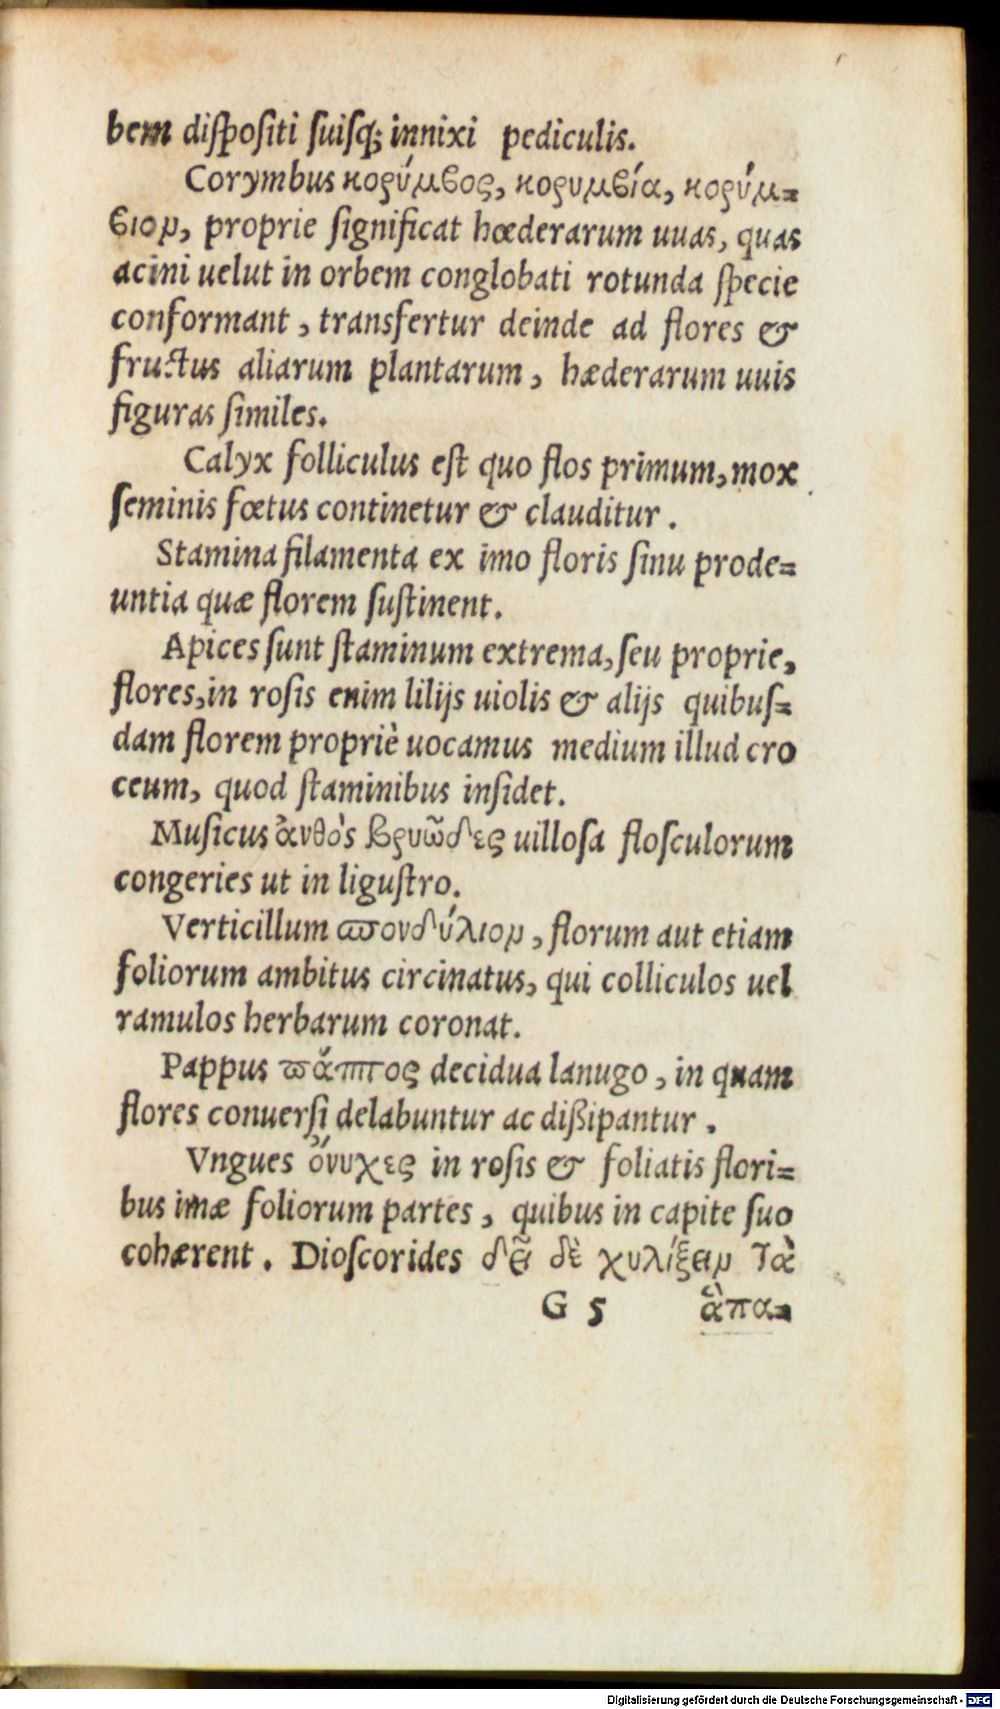 bem diſpoſiti ſuiſq; innixi pediculis.
Corymbus κορύμβος, κορυμβία, κορύμ=
βιον, proprie ſignificat hœderarum uuas, quas
acini uelut in orbem conglobati rotunda ſpecie
conformant, transfertur deinde ad flores &
fructus aliarum plantarum, hæderarum uuis
figuras ſimiles.
Calyx folliculus eſt quo flos primum, mox
ſeminis fœtus continetur & clauditur.
Stamina filamenta ex imo floris ſinu prode=
untia quæ florem ſuſtinent.
Apices ſunt ſtaminum extrema, ſeu proprie,
flores, in roſis enim lilijs uiolis & alijs quibuſ=
dam florem propriè uocamus medium illud cro
ceum, quod ſtaminibus inſidet.
Muſicus ἄνθὸς βρυῶδες uilloſa floſculorum
congeries ut in liguſtro.
Verticillum σπονδύλιον, florum aut etiam
foliorum ambitus circinatus, qui colliculos uel
ramulos herbarum coronat.
Pappus πάππος decidua lanugo, in quam
flores conuerſi delabuntur ac dißipantur.
Vngues ὄνυχες in roſis & foliatis flori=
bus imæ foliorum partes, quibus in capite ſuo
cohærent. Dioſcorides δεῖ δὲ χυλίζειν τὰ
G 5 ἁπα=
Digitalisierung gefördert durch die Deutsche Forschungsgemeinschaft - DFG